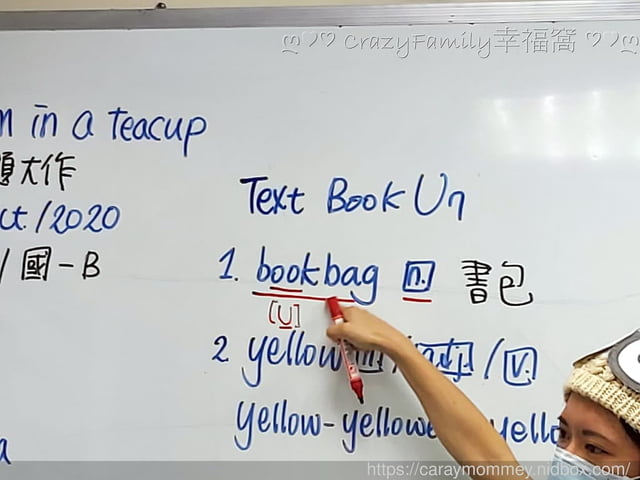 CrazyFamily幸福窩
in a teacup
題大作
/2020
/ 國 - B
Text Book U7
1. bookbag n. 書包
[U]
2 yellow n. / adj. / v.
yellow - yellowe yello
https://caraymommey.nidbox.com/